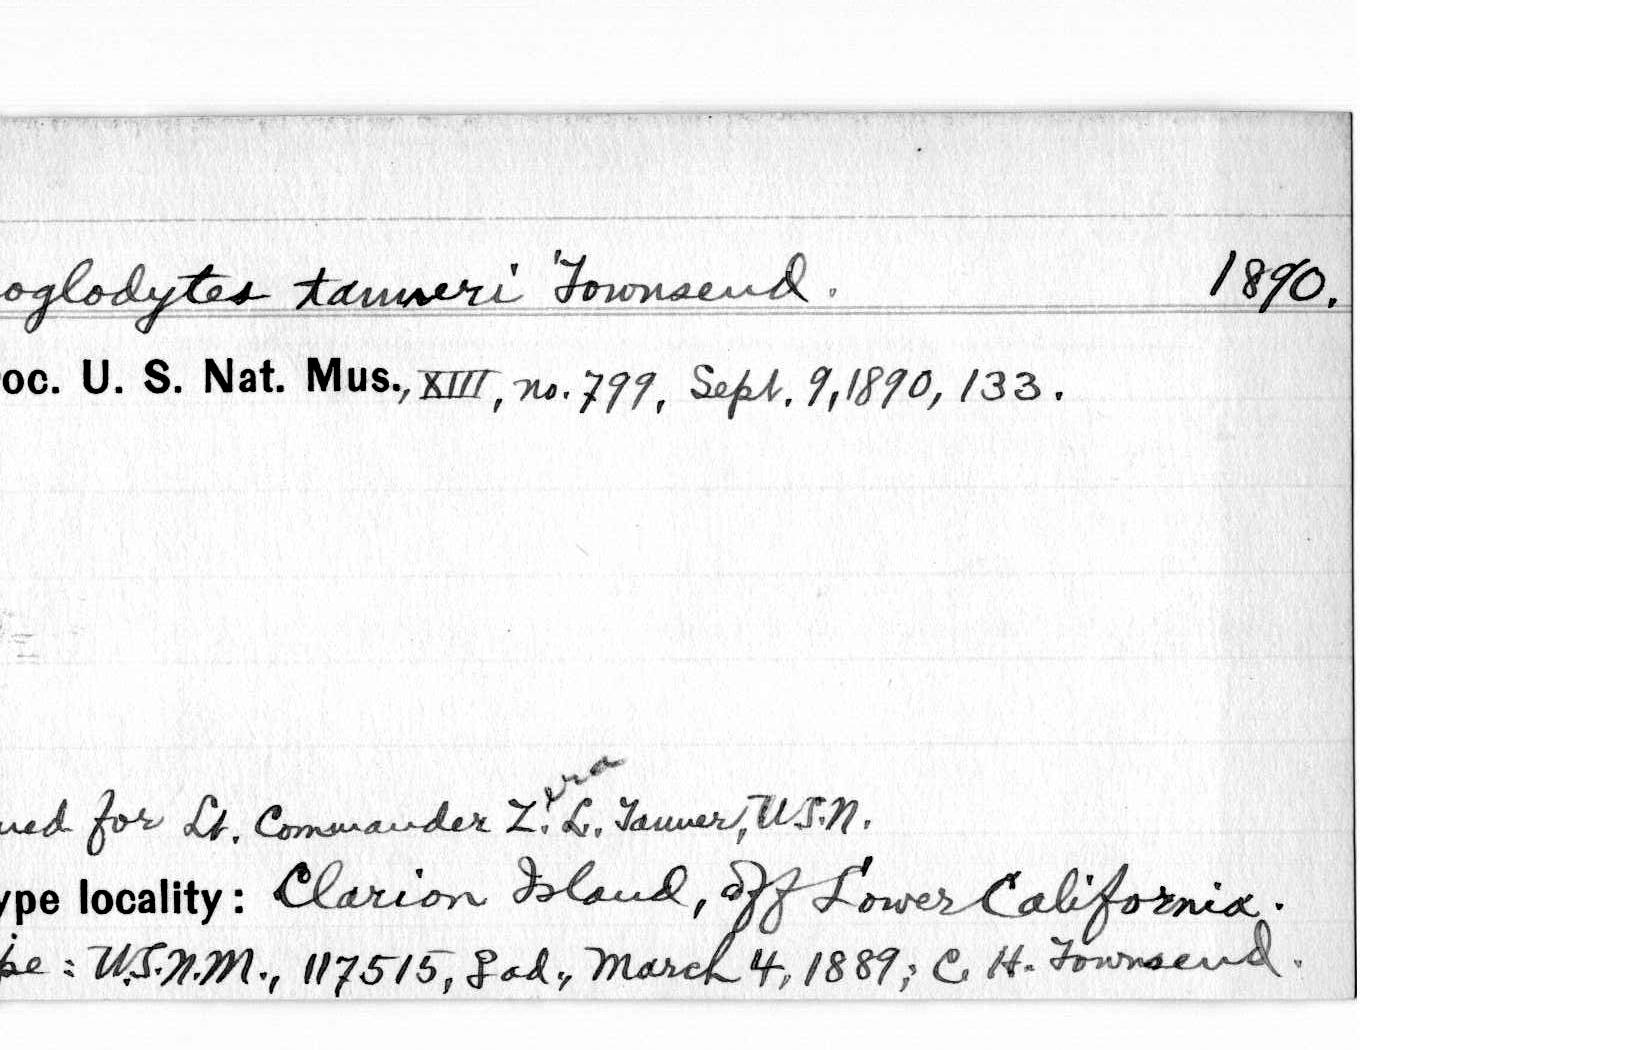 oglodytes tanneri Townsend. 1890.
oc. U. S. Nat. Mus., XIII, no. 799, Sept. 9, 1890, 133.
era
ned for Lt. Commander Z. L. Tanner, U.S.N.
ype locality: Clarion Island, off Lower California.
pe: U.S.N.M., 117515, ad., March 4, 1889; C. H. Townsend.